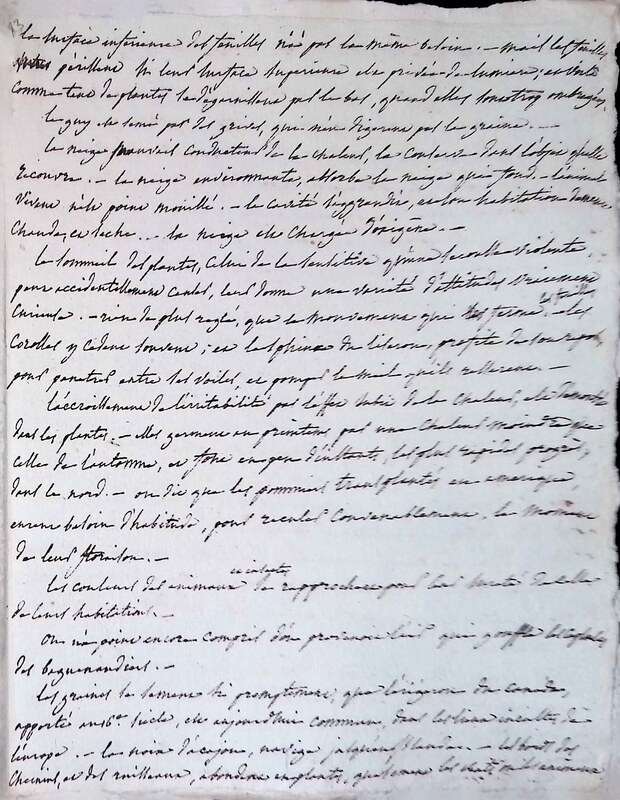 13
la surface inférieure des feuilles n'a pas le même besoin. — mais les feuilles
périssent si leur surface supérieure est privée de lumière; et
comme tant de plantes se dégarnissent par le bas, quand elles sont trop ombragées.
le guy est semé par des grives, qui n'en digerent pas la graine. —
la neige mauvais conducteur de la chaleur, la conserve dans l'objet qu'elle
recouvre. — la neige environnante, absorbe la neige qui fond. — l'animal
vivant n'est point mouillé. — la cavité s'aggrandit, et son habitation demeure
chaude, et seche. — la neige est chargée d'oxigène. —
le sommeil des plantes, celui de la sensitive qu'une secousse violente
peut accidentellement causer, leur donne une variété d'attitudes vraiement
curieuse. — rien de plus reglé, que le mouvement que les feuilles font. — les
corolles y cedent souvent; et le sphinx du liseron, profite de leur repos,
pour penetrer entre ses voiles, et pomper le miel qu'ils recelent. —
l'accroissement de l'irritabilité par l'effet de la chaleur, est demontré
dans les plantes. — elles germent au printems, par une chaleur moindre que
celle de l'automne, et font en peu d'instants, les plus rapides progrès,
dans le nord. — on dit que les pommiers transplantés en amerique,
eurent besoin d'habitude, pour reculer convenablement, le moment
de leur floraison. —
les couleurs des animaux et insectes se rapprochent pour leur sureté de celles
de leurs habitations. —
On n'a point encore compris d'où provenait l'air qui gonfle les
des baguenaudiers. —
les graines se sement si promptement, que l'érigeron du canada,
apporté au 16e siècle, est aujourd'hui commun, dans les lieux incultes de
l'europe. — la noix d'acajou, navige jusqu'en Islande. — les bords des
chemins, et des ruisseaux, abondent en plantes, que sement les